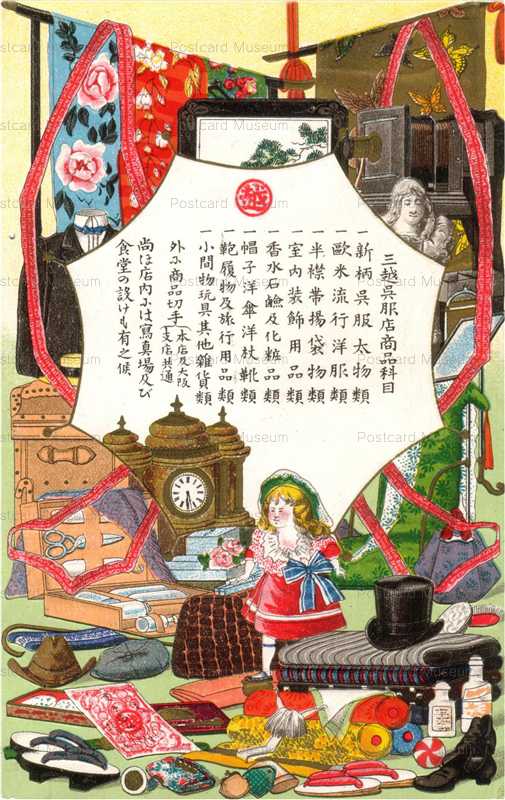 三越呉服店商品科目
一新柄呉服太物類
一歐米流行洋服類
一半襟帯揚袋物類
一室内装飾用品類
一香水石鹸及化粧品類
一帽子洋傘洋杖靴類
一鞄履物及旅行用品類
一小間物玩具其他雑貨類
外ニ商品切手
本店及大阪
支店共通
尚ほ店内には寫真場及び
食堂の設けも有之候
越
Postcard Museum